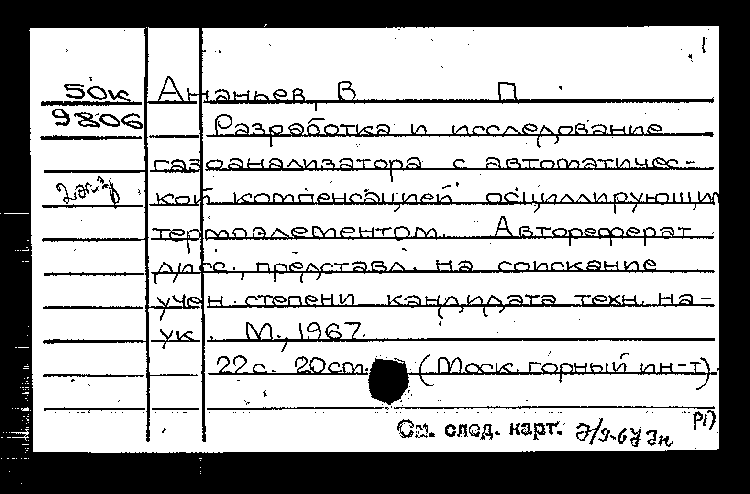 1
50к Ананьев, В П.
9806 Разработка и исследование
газоанализатора с автоматичес-
2 экз кой компенсацией осциллирующим
термоэлементом. Автореферат
дисс., представл. на соискание
учен. степени кандидата техн. на-
ук. М., 1967.
22с. 20cm. (Моск. горный ин-т)
См. след. карт.